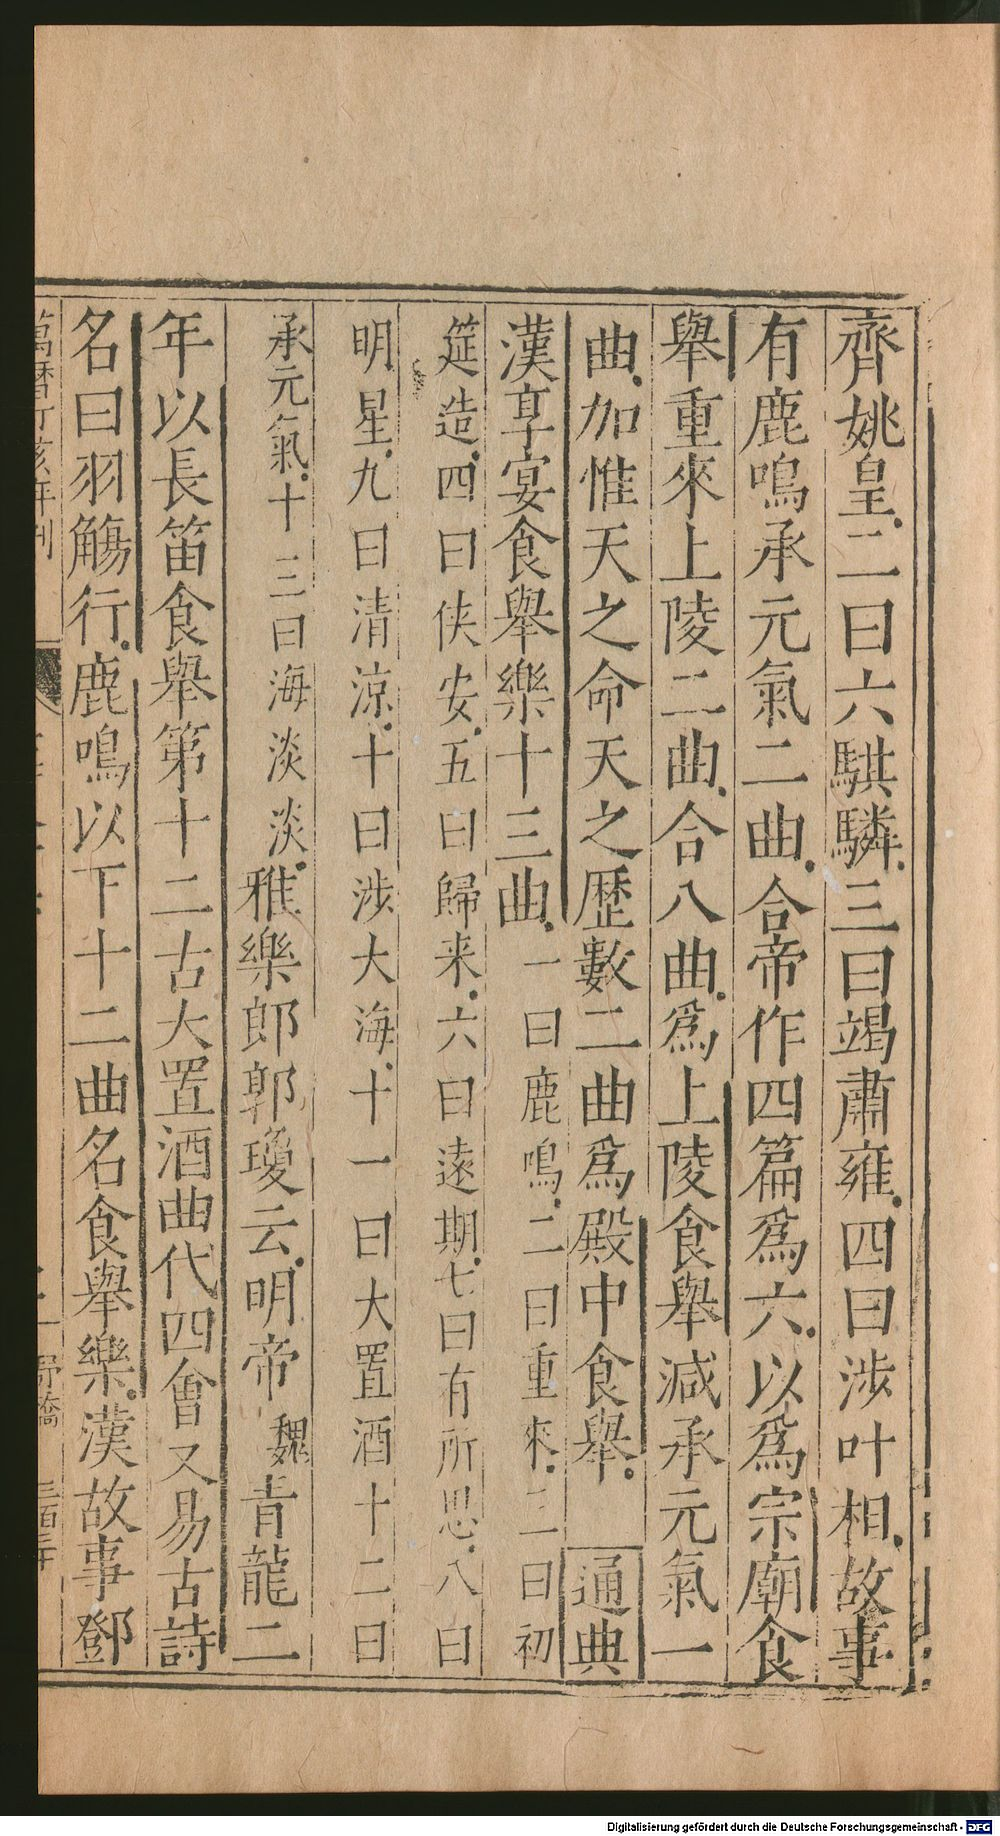 齊姚皇二曰六騏驎三曰竭肅雍四曰涉叶相故事
有鹿鳴承元氣二曲合帝作四篇爲六以爲宗廟食
舉重來上陵二曲合八曲爲上陵食舉減承元氣一
曲加惟天之命天之歷數二曲爲殿中食舉 通典
漢享宴食舉樂十三曲一曰鹿鳴二曰重來三曰初
筵造四曰俠安五曰歸来六曰遠期七曰有所思八曰
明星九曰清涼十曰涉大海十一曰大置酒十二曰
承元氣十三曰海淡淡雅樂郎郭瓊云明帝魏青龍二
年以長笛食舉第十二古大置酒曲代四會又易古詩
名曰羽觴行鹿鳴以下十二曲名食舉樂漢故事鄧
萬曆丁亥年刊
三百三十
Digitalisierung gefördert durch die Deutsche Forschungsgemeinschaft - DFG